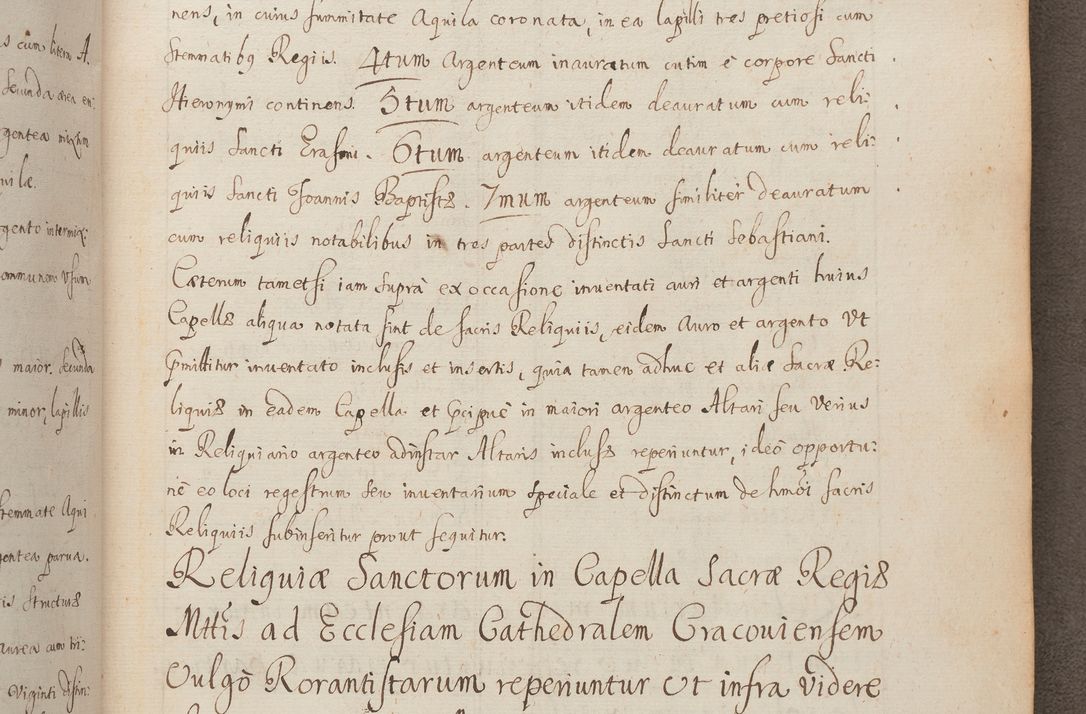 nens, in cuius summitate Aquila coronata, in ea lapilli tres pretiosi cum
stemmatibq Regiis. 4tum Argenteum inauratum cutim è corpore Sancti
Hieronymi continens. 5tum argenteum itidem deauratum cum reli:
quiis Sancti Erasmi. 6tum argenteum itidem deauratum cum reli:
quiis Sancti Joannis Baptistæ. 7mum argenteum similiter deauratum
cum reliquiis notabilibus in tres partes distinctis Sancti Sebastiani.
Cæterum tametsi iam suprà ex occasione inventati auri et argenti huius
Capellæ aliqua notata sint de sacris Reliquiis, eidem Auro et argento Vt
pmittitur inventato inclusis et insertis, quia tamen adhuc et aliæ Sacræ Re:
liquiæ in eadem Capella et pcipuè in maiori argenteo Altari seu Verius
in Reliquiario argenteo adinstar Altaris inclusæ reperiuntur, ideò opportu:
nè eo loci regestrum seu inventarium speciale et distinctum de hmõi sacris
Reliquiis subinseritur prout sequitur:
Reliquiæ Sanctorum in Capella Sacræ Regiæ
Mttis ad Ecclesiam Cathedralem Cracouiensem
Vulgò Rorantistarum reperiuntur Vt infra Videre
s cum litera A.
Secunda ærea en:
gentea mixtim
uilæ.
gento intermix:
ommunem Vsum
maior. Secunda
minor, lapillis
stemmate Aqui
gentea parua.
is structuræ
aurea cum tri:
Viginti distin: